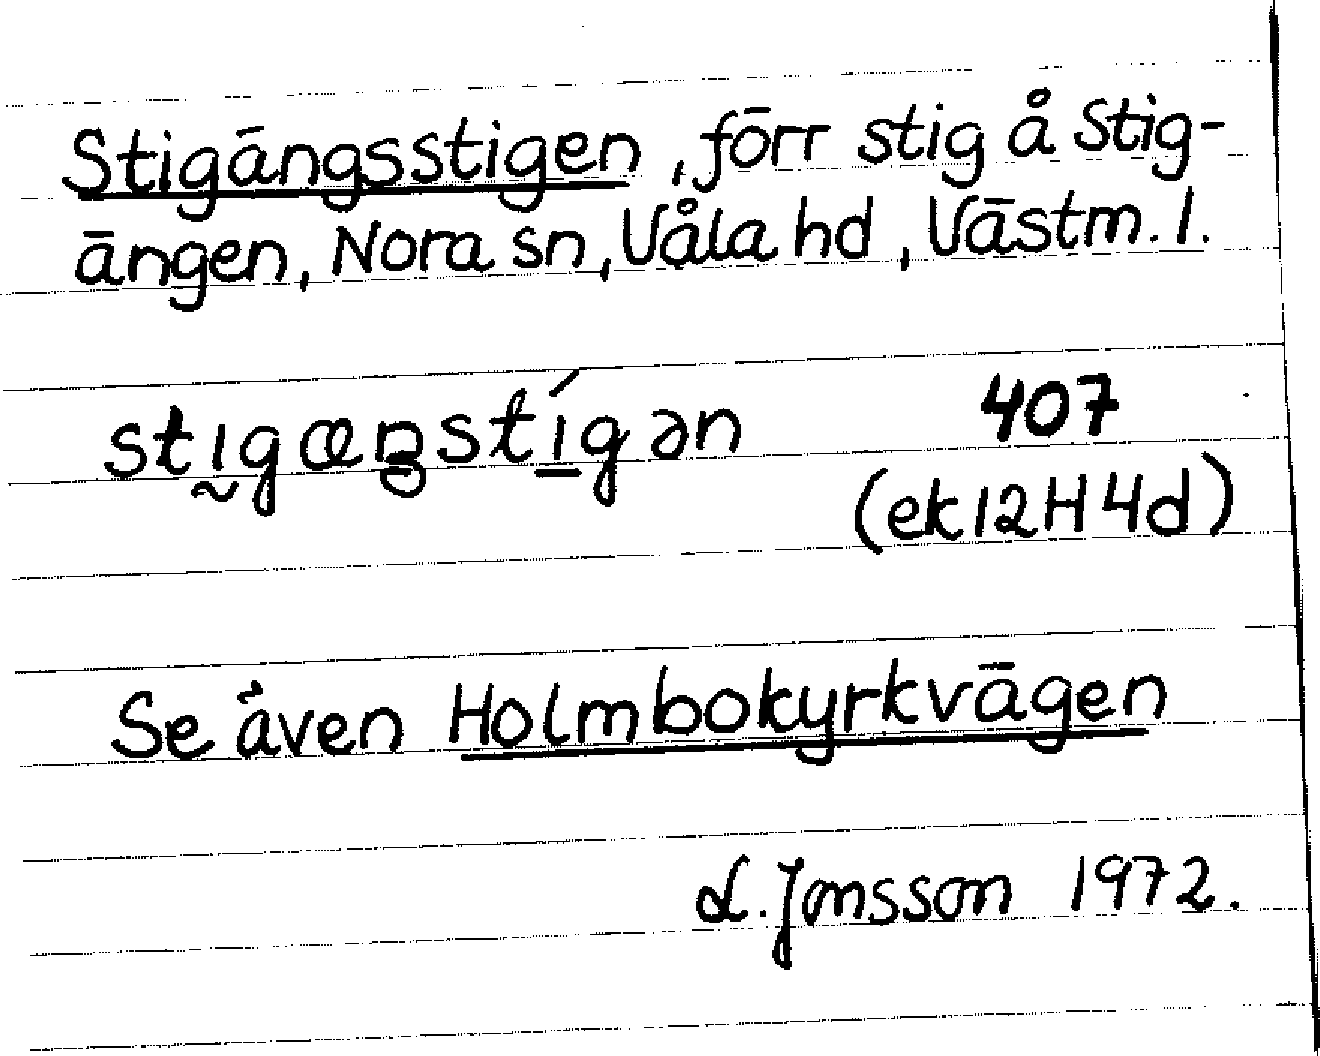 Stigängsstigen, förr stig å Stig-
ängen, Nora sn, Våla hd, Västm. l.
stıgœŋstı́gən 407
(ek 12H 4d)
Se även Holmbokyrkvägen
L. Jonsson 1972.